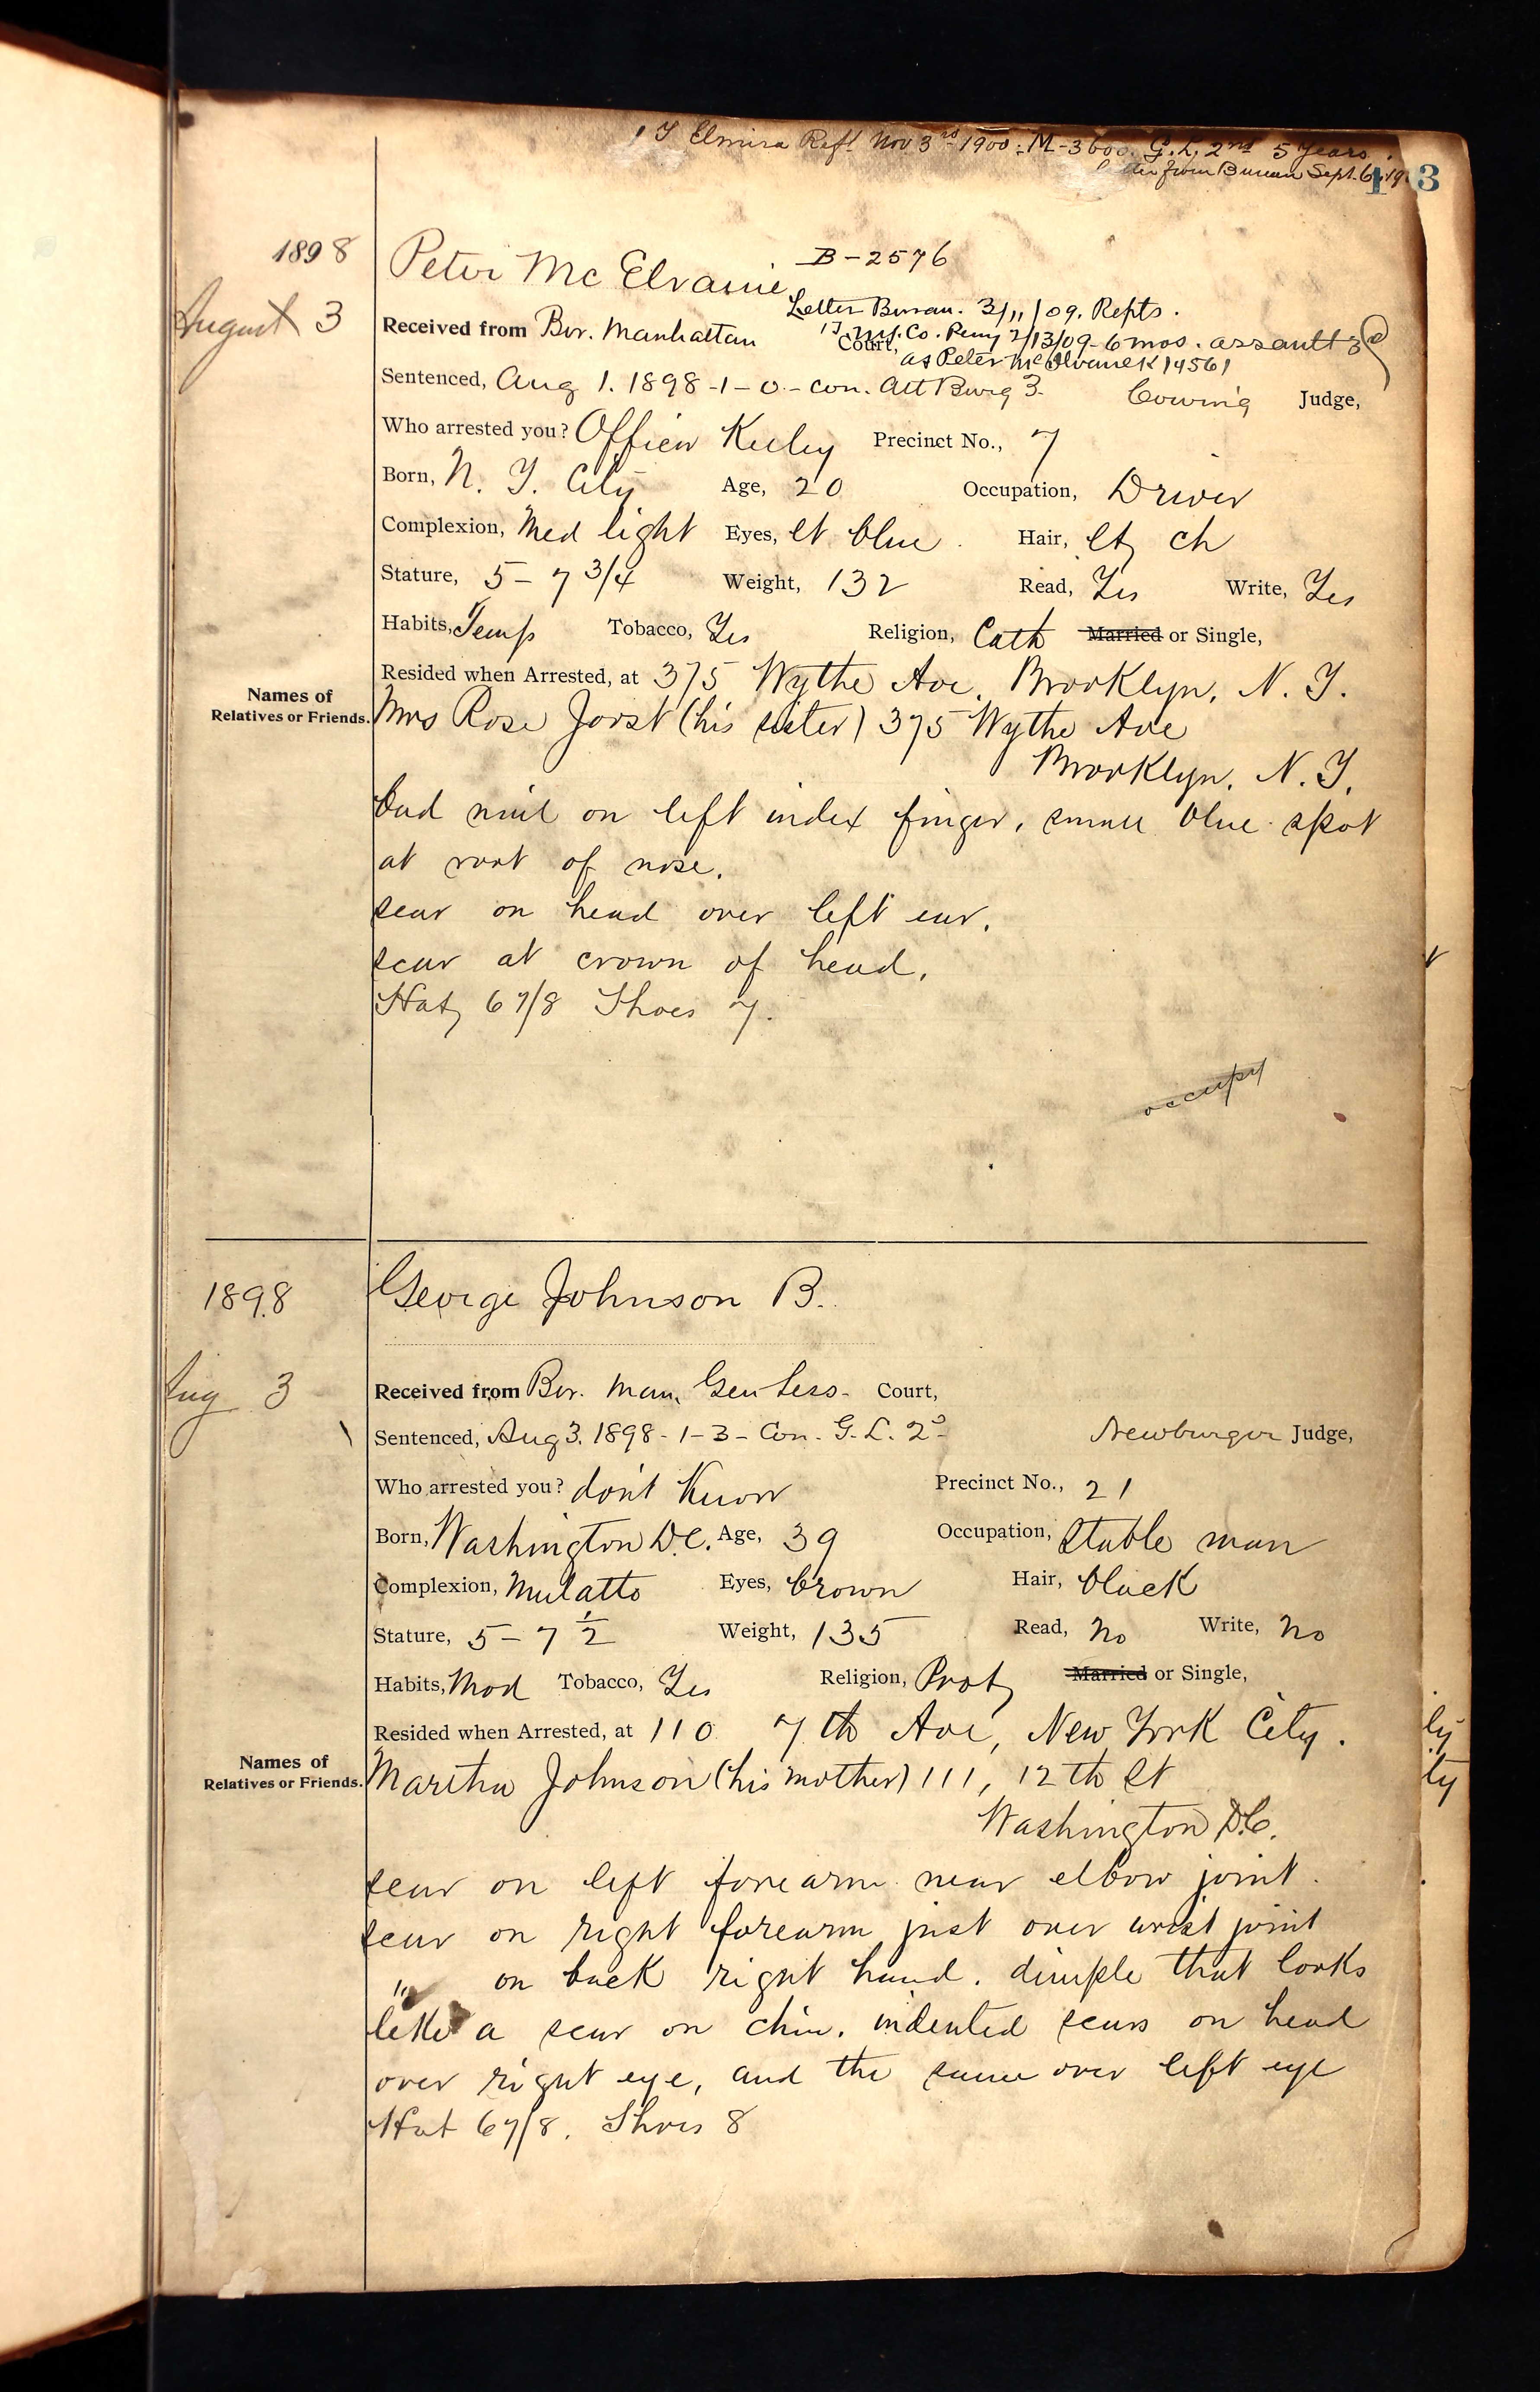 1 T Elmira Refy Nov 3rd 1900: M-3600. G. L. 2nd 5 Years.
from Bureau Sept. 6, 19
1 3
1898
Peter Mc Elvaine
B-2576
August 3
Letter Bureau. 3/11/09. Repts.
Received from Bor. Manhattan Court,
Co. Peny 2/13/09 - 6 mos. assault 3d
as Peter McIlvaine K14561
Sentenced, Aug 1. 1898 - 1 - 0 - con. Att Burg 3. Cowing Judge,
Who arrested you? Officer Keeley Precinct No., 7
Born, N. Y. City Age, 20 Occupation, Driver
Complexion, Med light Eyes, lt blue. Hair, lt ch
Stature, 5 - 7 3/4 Weight, 132 Read, Yes Write, Yes
Habits, Temp Tobacco, Yes Religion, Cath Married or Single,
Resided when Arrested, at 375 Wythe Ave, Brooklyn, N. Y.
Names of
Relatives or Friends.
Mrs Rose Jorst (his sister) 375 Wythe Ave
Brooklyn, N. Y.
bad nail on left index finger, small blue spot
at root of nose.
scar on head over left ear.
scar at crown of head.
Hat 6 7/8 Shoes 7.
occupy
1898
George Johnson B.
Aug 3
Received from Bor. Man, Gen Sess- Court,
Sentenced, Aug 3, 1898 - 1 - 3 - Con. G. L. 2d Newburger Judge,
Who arrested you? don't Know Precinct No., 21
Born, Washington D.C. Age, 39 Occupation, Stable man
Complexion, Mulatto Eyes, brown Hair, black
Stature, 5 - 7 1/2 Weight, 135 Read, No Write, No
Habits, Mod Tobacco, Yes Religion, Prot Married or Single,
Resided when Arrested, at 110 7th Ave, New York City.
Names of
Relatives or Friends.
Martha Johnson (his mother) 111, 12th St
Washington D.C.
scar on left forearm near elbow joint.
scar on right forearm just over wrist joint
" on back right hand. dimple that looks
like a scar on chin. indented scars on head
over right eye, and the same over left eye
Hat 6 7/8. Shoes 8